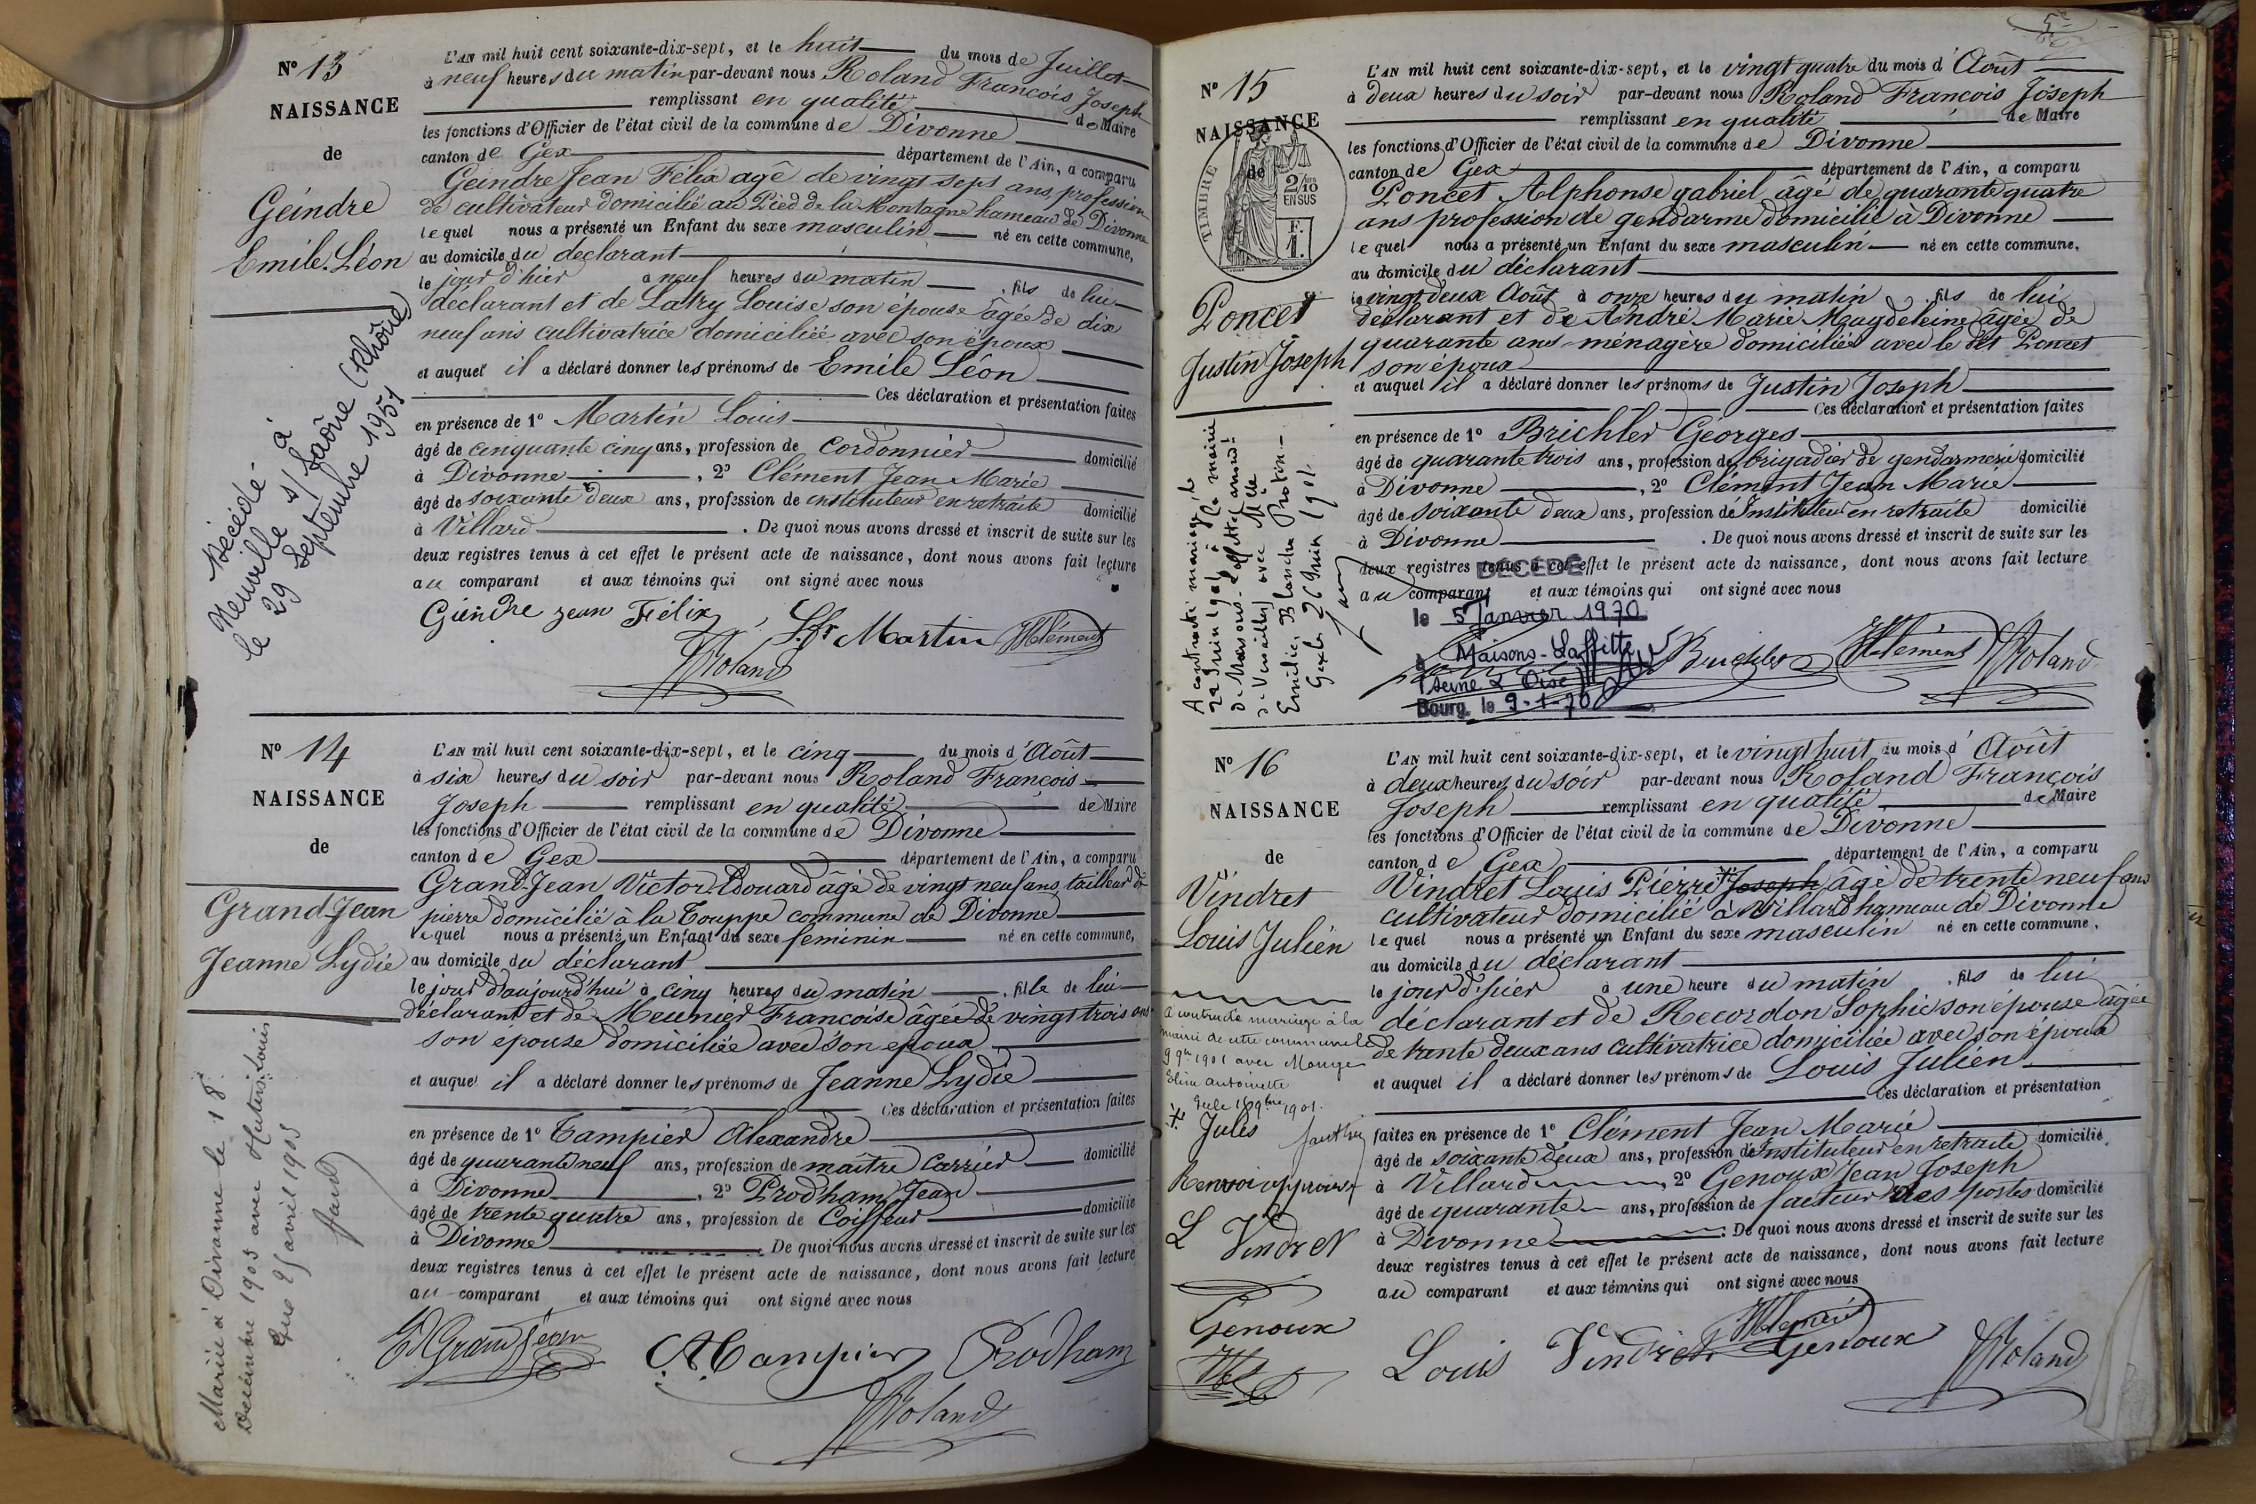 N° 13
NAISSANCE
de
Geindre
Emile Léon
Décédé à
Neuville s/ Saône (Rhône)
le 29 Septembre 1951
L'AN mil huit cent soixante-dix-sept, et le huit du mois de Juillet
à neuf heures du matin par-devant nous Roland François Joseph
remplissant en qualité de Maire
les fonctions d'Officier de l'état civil de la commune de Divonne
canton de Gex département de l'Ain, a comparu
Geindre Jean Félix agé de vingt sept ans, profession
de cultivateur domicilié au Pied de la Montagne hameau de Divonne
lequel nous a présenté un Enfant du sexe masculin né en cette commune,
au domicile du déclarant
le jour d'hier à neuf heures du matin, fils de lui
déclarant et de Latry Louise son épouse âgée de dix
neuf ans cultivatrice domiciliée avec son époux
et auquel il a déclaré donner les prénoms de Emile Léon
Ces déclaration et présentation faites
en présence de 1° Martin Louis
âgé de cinquante cinq ans, profession de cordonnier domicilié
à Divonne, 2° Clément Jean Marie
âgé de soixante deux ans, profession de instituteur en retraite domicilié
à Villard. De quoi nous avons dressé et inscrit de suite sur les
deux registres tenus à cet effet le présent acte de naissance, dont nous avons fait lecture
au comparant et aux témoins qui ont signé avec nous
Geindre jean Félix Martin JMClément
Roland
N° 14
NAISSANCE
de
Grand-Jean
Jeanne Lydie
Mariée à Divonne le 18
Décembre 1903 avec Louis
Gex 21 avril 1905
L'AN mil huit cent soixante-dix-sept, et le cinq du mois d'Août
à six heures du soir par-devant nous Roland François
Joseph remplissant en qualité de Maire
les fonctions d'Officier de l'état civil de la commune de Divonne
canton de Gex département de l'Ain, a comparu
Grand-Jean Victor Edouard âgé de vingt neuf ans, tailleur de
pierre domicilié à la Touppe commune de Divonne
lequel nous a présenté un Enfant du sexe feminin né en cette commune,
au domicile du déclarant
le jour d'aujourd'hui à cinq heures du matin, fille de lui
déclarant et de Meunier Françoise âgée de vingt trois ans
son épouse domiciliée avec son époux
et auquel il a déclaré donner les prénoms de Jeanne Lydie
Ces déclaration et présentation faites
en présence de 1° Tampier Alexandre
âgé de quarante neuf ans, profession de maître Carrier domicilié
à Divonne, 2° Prodham Jean
âgé de trente quatre ans, profession de Coiffeur domicilié
à Divonne. De quoi nous avons dressé et inscrit de suite sur les
deux registres tenus à cet effet le présent acte de naissance, dont nous avons fait lecture
au comparant et aux témoins qui ont signé avec nous
Ed Grandjean A. Tampier Prodham
Roland
5
N° 15
NAISSANCE
de
TIMBRE
2/10
EN SUS
F.
1.
Poncet
Justin Joseph
A contracté mariage le
22 Juin 1901 à la mairie
de Maisons-Laffitte (arrond.t
de Versailles) avec Mlle
Emilie, Blanche Protin.
Gex le 26 Juin 1901.
L'AN mil huit cent soixante-dix-sept, et le vingt quatre du mois d'Août
à deux heures du soir par-devant nous Roland François Joseph
remplissant en qualité de Maire
les fonctions d'Officier de l'état civil de la commune de Divonne
canton de Gex département de l'Ain, a comparu
Poncet Alphonse gabriel âgé de quarante quatre
ans profession de gendarme domicilié à Divonne
lequel nous a présenté un Enfant du sexe masculin né en cette commune,
au domicile du déclarant
le vingt deux Août à onze heures du matin, fils de lui
déclarant et de André Marie Magdeleine âgée de
quarante ans ménagère domiciliée avec le dit Poncet
son époux
et auquel il a déclaré donner les prénoms de Justin Joseph
Ces déclaration et présentation faites
en présence de 1° Brichler Georges
âgé de quarante trois ans, profession de brigadier de gendarmerie domicilié
à Divonne, 2° Clément Jean Marie
âgé de soixante deux ans, profession de Instituteur en retraite domicilié
à Divonne. De quoi nous avons dressé et inscrit de suite sur les
deux registres tenus à cet effet le présent acte de naissance, dont nous avons fait lecture
au comparant et aux témoins qui ont signé avec nous
DÉCÉDÉ
le 5 Janvier 1970
à Maisons-Laffitte
(Seine & Oise)
Bourg, le 9-1-70
Brichler JMClément Roland
N° 16
NAISSANCE
de
Vindret
Louis Julien
a contracté mariage à la
mairie de cette commune le
9 9bre 1901 avec Monge
Elise Antoinette
Gex le 16 9bre 1901.
Jules
Renvoi approuvé
L Vindret
Genoux
L'AN mil huit cent soixante-dix-sept, et le vingt huit du mois d'Août
à deux heures du soir par-devant nous Roland François
Joseph remplissant en qualité de Maire
les fonctions d'Officier de l'état civil de la commune de Divonne
canton de Gex département de l'Ain, a comparu
Vindret Louis Pierre Joseph âgé de trente neuf ans
cultivateur domicilié à Villard hameau de Divonne
lequel nous a présenté un Enfant du sexe masculin né en cette commune,
au domicile du déclarant
le jour d'hier à une heure du matin, fils de lui
déclarant et de Recordon Sophie son épouse âgée
de trente deux ans cultivatrice domiciliée avec son époux
et auquel il a déclaré donner les prénoms de Louis Julien
Ces déclaration et présentation
faites en présence de 1° Clément Jean Marie
âgé de soixante deux ans, profession de Instituteur en retraite domicilié
à Villard, 2° Genoux Jean Joseph
âgé de quarante ans, profession de facteur des postes domicilié
à Divonne. De quoi nous avons dressé et inscrit de suite sur les
deux registres tenus à cet effet le présent acte de naissance, dont nous avons fait lecture
au comparant et aux témoins qui ont signé avec nous
Louis Vindret JMClément Genoux Roland